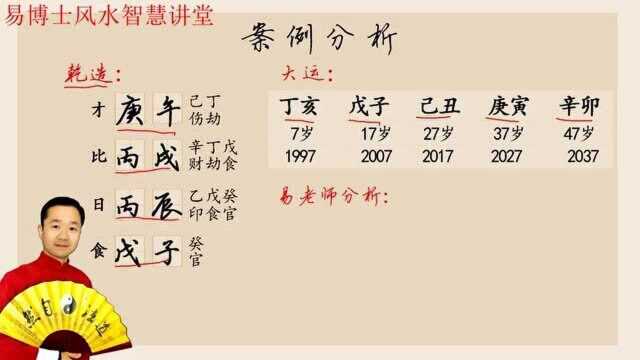 易博士风水智慧讲堂
案例分析
乾造：
才 庚午 己丁
伤劫
比 丙戌 辛丁戊
财劫食
日 丙辰 乙戊癸
印食官
食 戊子 癸
官
大运：
丁亥 戊子 己丑 庚寅 辛卯
7岁 17岁 27岁 37岁 47岁
1997 2007 2017 2027 2037
易老师分析：
然自法道